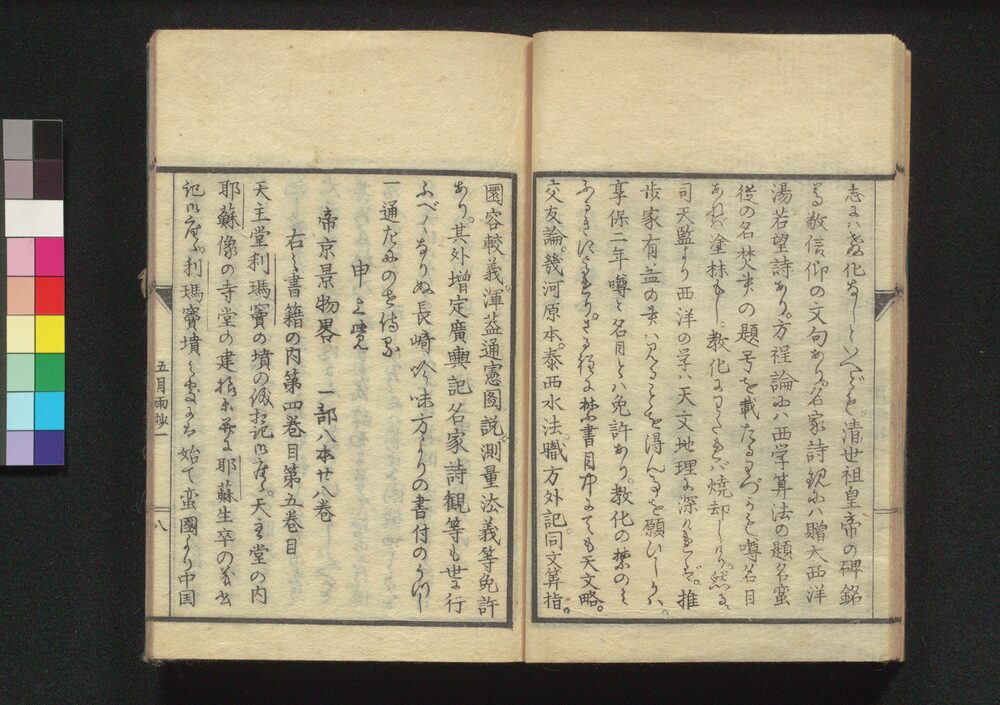 志には教化なしといへども。清世祖皇帝の碑銘
敬信仰の文句あり。名家詩観には贈大西洋
湯若望詩あり。方程論には西学算法の題名蛮
従の名焚書の題号を載たるまづかと噂名目
あれば塗抹し。教化にわたれば焼却しけり。然るに
司天監より西洋の学は天文地理に深ければ。推
歩家有益の書は見ることを得んことを願ひしかば。
享保二年噂と名目とは免許あり。教化の禁のみ
ふるきによれり。さる程に禁書目中にても天文略。
交友論。幾河原本。泰西水法。職方外記。同文算指。
圜容較義。渾蓋通憲図説。測量法義等免許
あり。其外増定廣輿記名家詩観等も世に行
ふべくなりぬ長崎吟味方よりの書付のうつし
一通左にのせ侍る
申上覚
帝京景物畧 一部八本廿八巻
右之書籍の内第四巻目第五巻目
天主堂利瑪竇の墳の儀相記御座候。天主堂の内
耶蘇像の寺堂の建様并に耶蘇生卒の
記御座候利瑪竇墳之 始て蛮國より中国
五月雨抄一
八